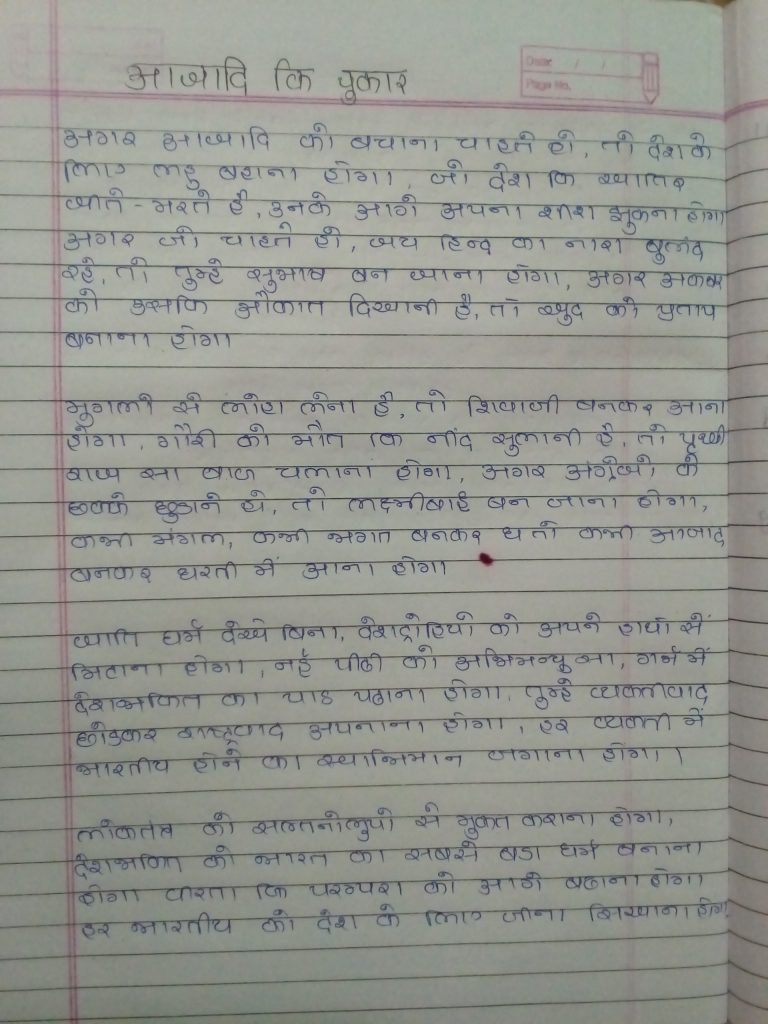 आजादि कि पुकार
Date: / /
Page No.
अगर आजादि को बचाना चाहते हो, तो देश के
लिए लहु बहाना होगा, जो देश कि ख्यातिर
जीते - मरते है, उनके आगे अपना शीश झुकना होगा
अगर जो चाहते हो, जय हिन्द का नारा बुलंद
रहे, तो तुम्हे सुभाष बन जाना होगा, अगर अकबर
को उसकि औकात दिखानी है, तो खुद को प्रताप
बनाना होगा।
मुगलो से लोहा लेना है, तो शिवाजी बनकर आना
होगा, गौरी को मौत कि नींद सुलानी है, तो पृथ्वी
राज सा बाण चलाना होगा, अगर अंग्रेजो के
छक्के छुडाने थे, तो लक्ष्मीबाई बन जाना होगा,
कभी मंगल, कभी भगत बनकर ध तो कभी आजाद
बनकर धरती में आना होगा।
जाति धर्म देखे बिना, देशद्रोहियो को अपने हाथों सें
मिटाना होगा, नई पीढी को अभिमन्यु सा, गर्भ में
देशभक्ति का पाठ पढाना होगा, तुम्हे व्यक्तीवाद
छोडकर राष्ट्रवाद अपनाना होगा, हर व्यक्ती में
भारतीय होने का स्वाभिमान जगाना होगा।।
लोकतंत्र को से मुक्त कराना होगा,
देशभक्ति को भारत का सबसे बडा धर्म बनाना
होगा वीरता कि परम्परा को आगे बढाना होगा
हर भारतीय को देश के लिए जीना सिखाना होगा